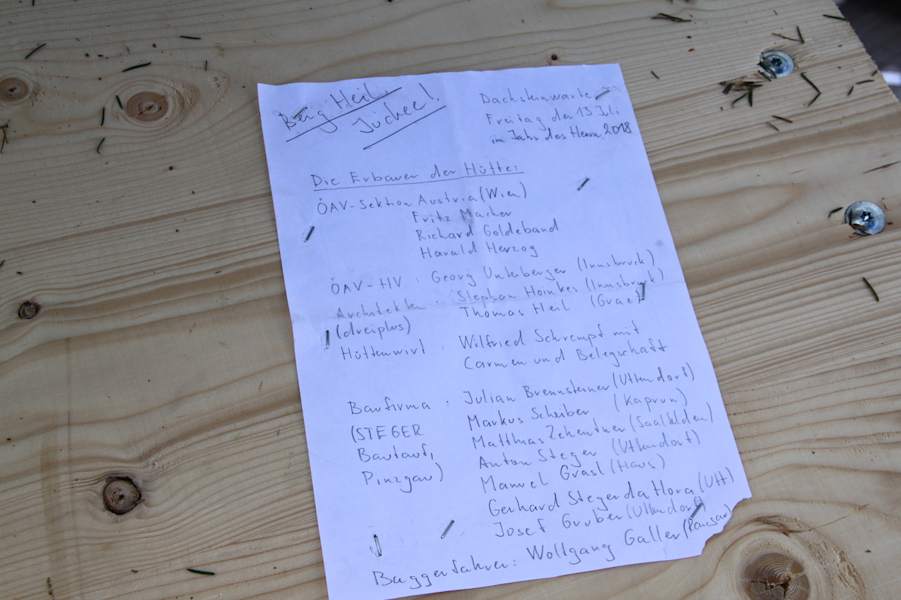 Berg Heil
Juchee!
Dachsteinwarte
Freitag der 13 Juli
im Jahr des Herrn 2018
Die Erbauer der Hütte:
ÖAV-Sektion Austria (Wien)
Fritz Macher
Richard Goldeband
Harald Herzog
ÖAV-HV : Georg Unterberger (Innsbruck)
Architekten : Stephan Hoinkes (Innsbruck)
(dreiplus) Thomas Heil (Graz)
Hüttenwirt : Wilfried Schrempf mit
Carmen und Belegschaft
Baufirma : Julian Brennsteiner (Uttendorf)
(STEGER Markus Scheiber (Kaprun)
Bautauf, Matthias Zehentner (Saalfelden)
Pinzgau) Anton Steger (Uttendorf)
Manuel Grasl (Haus)
Gerhard Steger da Hora (Utt)
Josef Gruber (Uttendorf)
Baggerfahrer: Wolfgang Galler (Ramsau)